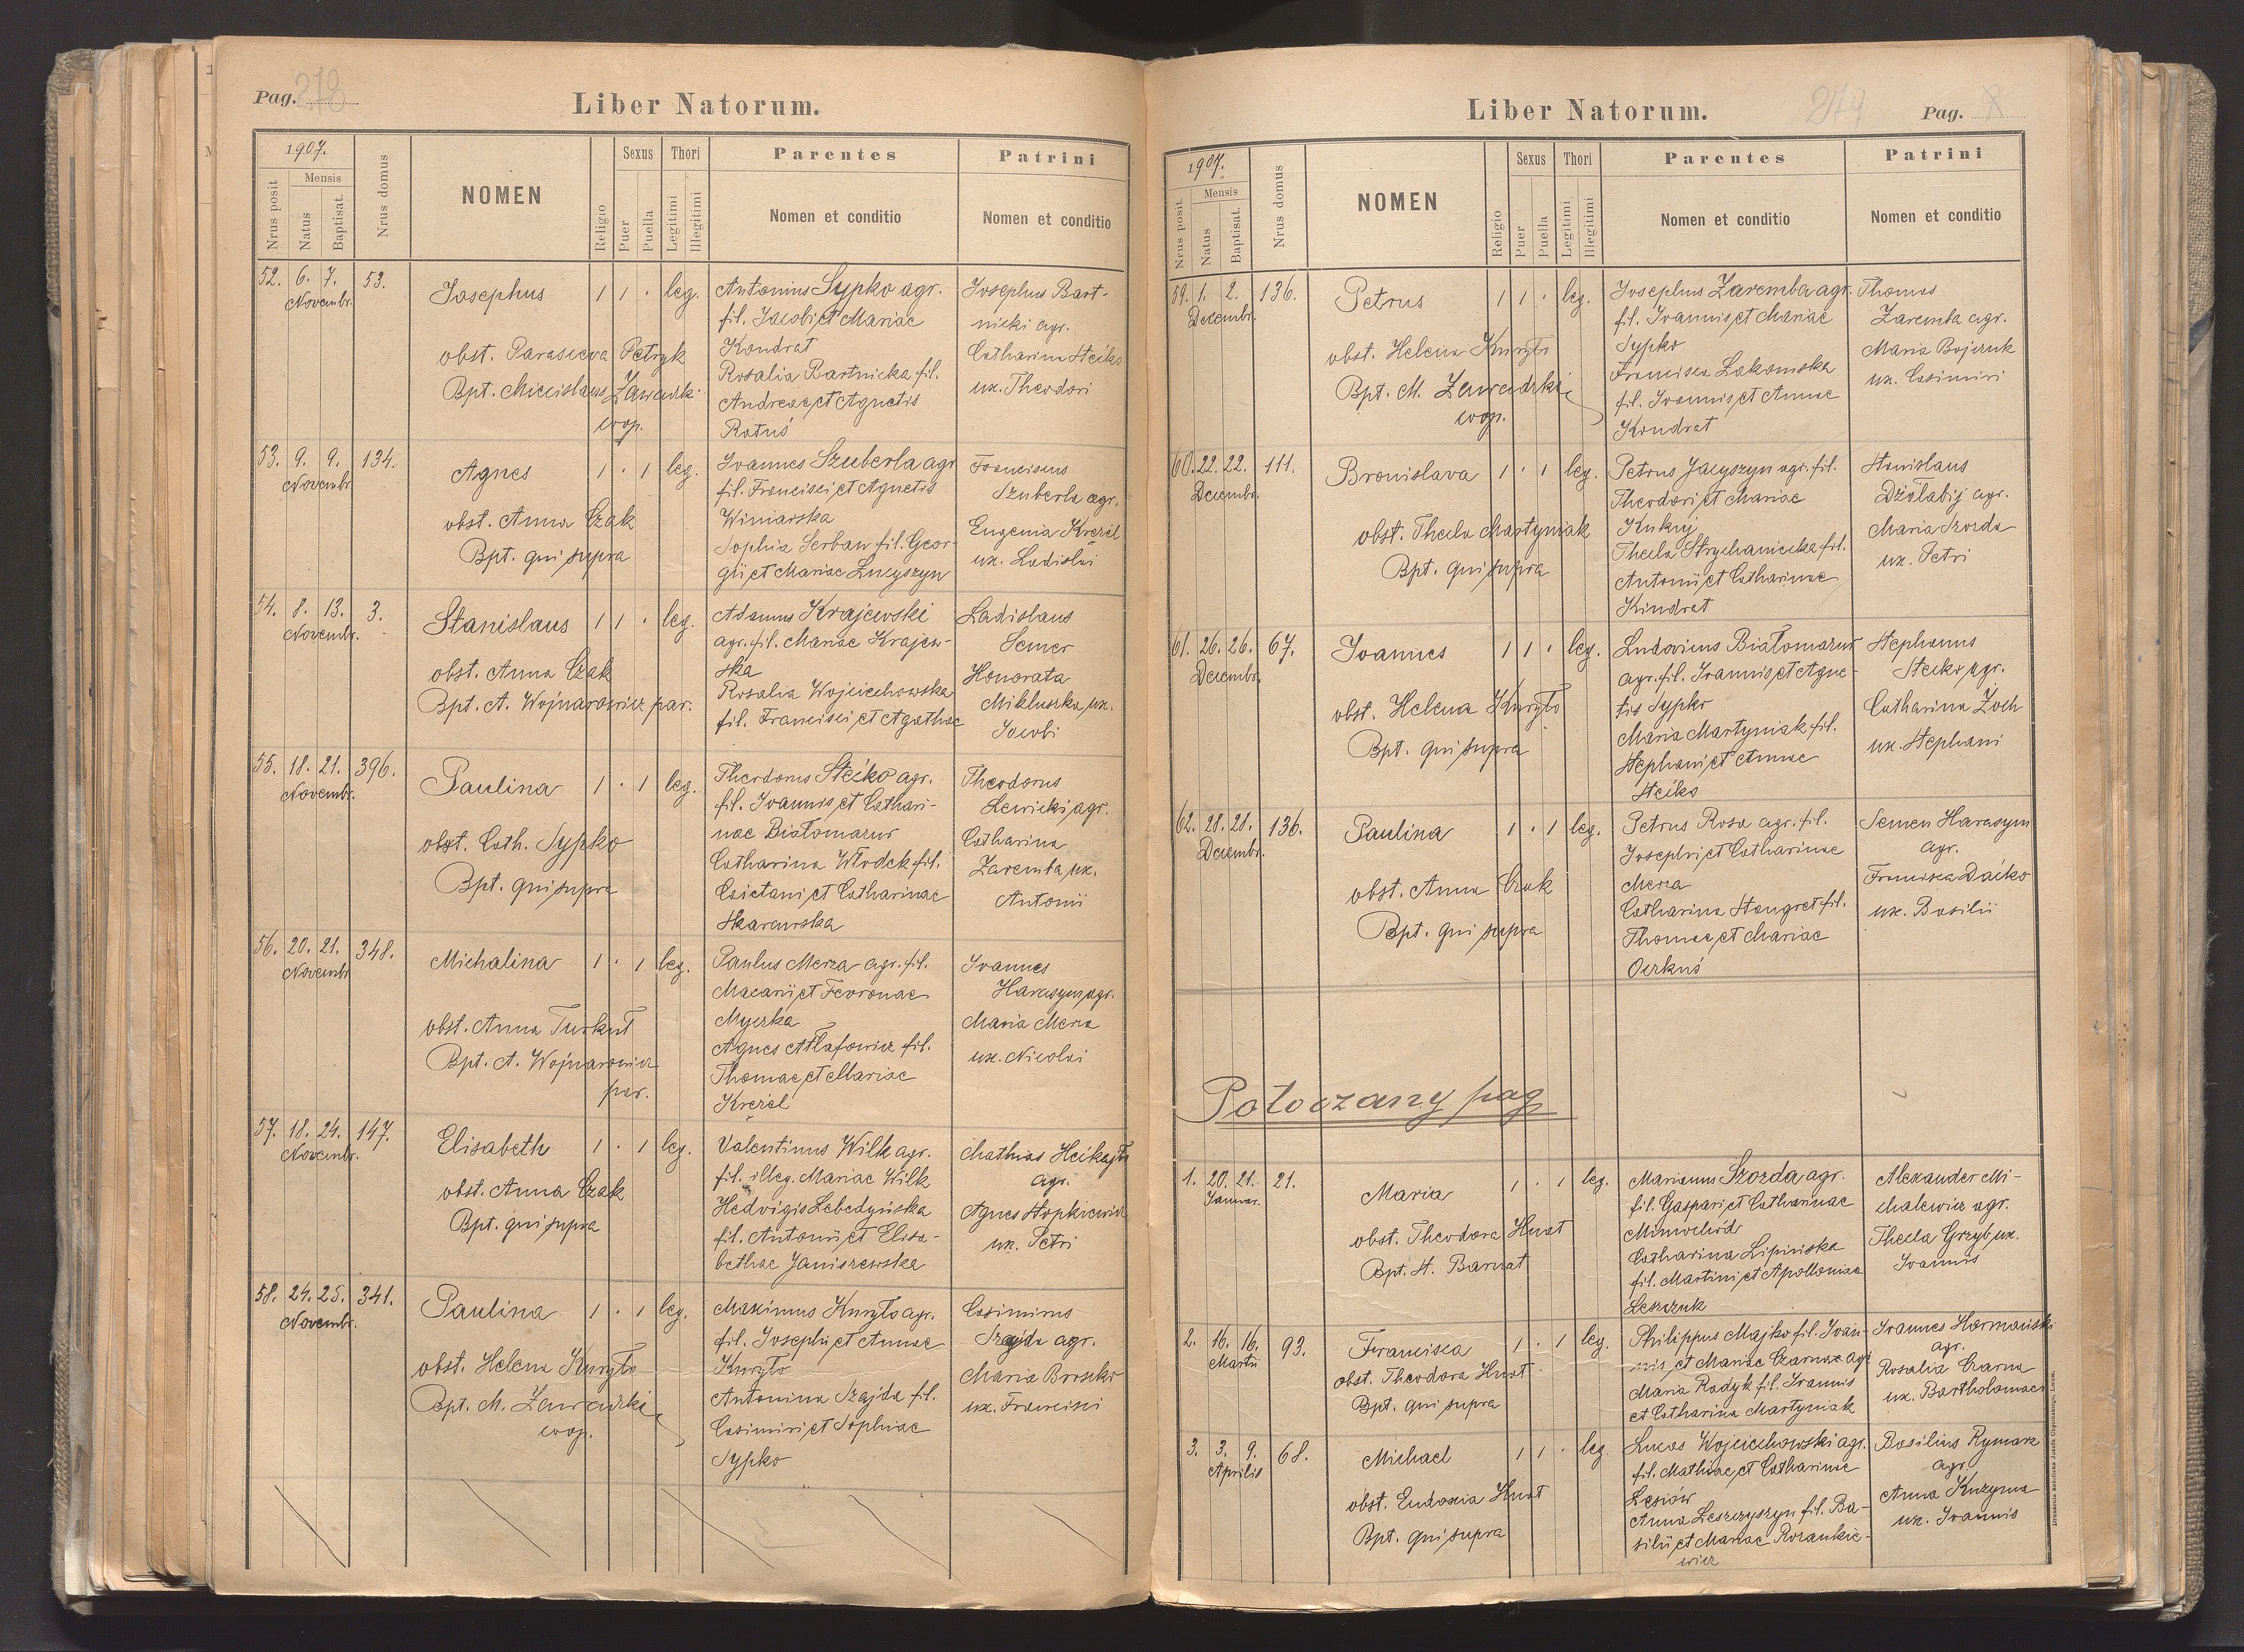 Pag. 278
Liber Natorum.
1907.
Nrus posit
Mensis
Natus
Baptisat.
Nrus domus
NOMEN
Religio
Sexus
Puer
Puella
Thori
Legitimi
Illegitimi
Parentes
Nomen et conditio
Patrini
Nomen et conditio
52. 6. 7. Novembr. 53.
Josephus 1 1 . leg.
obst. Parasceva Petryk
Bpt. Miecislaus Zawadzki
coop.
Antonius Sypko agr.
fil. Jacobi et Mariae
Kondrat
Rosalia Bartnicka fil.
Andreae et Agnetis
Ratuś
Josephus Bart-
nicki agr.
Catharina Steiko
ux. Theodori
53. 9. 9. Novembr. 134.
Agnes 1 . 1 leg.
obst. Anna Czak
Bpt. qui supra
Ioannes Szuberla agr
fil. Francisci et Agnetis
Winiarska
Sophia Serban fil. Geor-
gii et Mariae
Franciscus
Szuberla agr.
Eugenia Krężel
ux. Ladislai
54. 8. 13. Novembr. 3.
Stanislaus 1 1 . leg.
obst. Anna Czak
Bpt. A. Wojnarowicz par.
Adamus Krajewski
agr. fil. Mariae Krajew-
ska
Rosalia Wojciechowska
fil. Francisci et Agathae
Ladislaus
Semer
Honorata
Mikluszka ux.
Jacobi
55. 18. 21. Novembr. 396.
Paulina 1 . 1 leg.
obst. Cath. Sypko
Bpt. qui supra
Theodorus Steiko agr.
fil. Ioannis et Cathari-
nae Białomazur
Catharina Włodek fil.
Caietani et Catharinae
Skarawska
Theodorus
Lewicki agr.
Catharina
Zaremba ux.
Antonii
56. 20. 21. Novembr 348.
Michalina 1 . 1 leg.
obst. Anna Turkuł
Bpt. A. Wojnarowicz
par.
Paulus Merza agr. fil.
Macarii et Fevronae
Myerka
Agnes fil.
Thomae et Mariae
Krężel
Ioannes
Harasym agr.
Maria Merza
ux. Nicolai
57. 18. 24. Novembr. 147.
Elisabeth 1 . 1 leg.
obst. Anna Czak
Bpt. qui supra
Valentinus Wilk agr.
fil. illeg. Mariae Wilk
Hedvigis Lebedyńska
fil. Antonii et Elisa-
bethae Janiszewska
Mathias
agr.
Agnes Stopkiewicz
ux. Petri
58. 24. 25. Novembr. 341.
Paulina 1 . 1 leg.
obst. Helena Kuryło
Bpt. M. Zawadzki
coop.
Maximus Kuryło agr.
fil. Josephi et Annae
Kuryło
Antonina Szajda fil.
Casimiri et Sophiae
Sypko
Casimirus
Szajda agr.
Maria Broszko
ux. Francisci
Liber Natorum.
279 Pag.
1907.
Nrus posit
Mensis
Natus
Baptisat.
Nrus domus
NOMEN
Religio
Sexus
Puer
Puella
Thori
Legitimi
Illegitimi
Parentes
Nomen et conditio
Patrini
Nomen et conditio
59. 1. 2. Decembr. 136.
Petrus 1 1 . leg.
obst. Helena Kuryło
Bpt. M. Zawadzki
coop.
Josephus Zaremba agr.
fil. Ioannis et Mariae
Sypko
Francisca Łakomska
fil. Ioannis et Annae
Kondrat
Thomas
Zaremba agr.
Maria Bojczuk
ux. Casimiri
60. 22. 22. Decembr. 111.
Bronislava 1 . 1 leg.
obst. Thecla Martyniak
Bpt. qui supra
Petrus Jacyszyn agr. fil.
Theodori et Mariae
Kukuj
Thecla Strychanicka fil.
Antonii et Catharinae
Kindrat
Stanislaus
Dżołabij agr.
Maria Szozda
ux. Petri
61. 26. 26. Decembr. 67.
Ioannes 1 1 . leg.
obst. Helena Kuryło
Bpt. qui supra
Ludovicus Białomazur
agr. fil. Ioannis et Agne-
tis Sypko
Maria Martyniak fil.
Stephani et Annae
Steiko
Stephanus
Steiko agr.
Catharina Zoch
ux. Stephani
62. 28. 28. Decembr. 136.
Paulina 1 . 1 leg.
obst. Anna Czak
Bpt. qui supra
Petrus Rosa agr. fil.
Josephi et Catharinae
Merza
Catharina Stangret fil.
Thomae et Mariae
Oerkuś
Semen Harasym
agr.
Francisca Daćko
ux. Basilii
Potoczany pag
1. 20. 21. Januar. 21.
Maria 1 . 1 leg.
obst. Theodora Hnat
Bpt. St. Barnat
Marianus Szozda agr.
fil. Gaspari et Catharinae
Minochód
Catharina Lipińska
fil. Martini et Apolloniae
Leszczuk
Alexander Mi-
chalewicz agr.
Thecla Grzyb ux.
Ioannis
2. 16. 16. Martii 93.
Francisca 1 . 1 leg.
obst. Theodora Hnat
Bpt. qui supra
Philippus Majko fil. Ioan-
nis et Mariae Czarnae agr
Maria Radyk fil. Ioannis
et Catharina Martyniak
Ioannes Hormański
agr.
Rosalia Czarna
ux. Bartholomaei
3. 3. 9. Aprilis 68.
Michael 1 1 . leg.
obst. Eudoxia Hnat
Bpt. qui supra
Lucas Wojciechowski agr.
fil. Mathiae et Catharinae
Lesiów
Anna Leszczyszyn fil. Ba-
silii et Mariae Rozankie-
wicz
Basilius Rymarz
agr.
Anna Kuzyma
ux. Ioannis